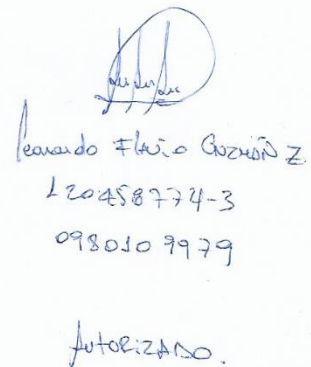 Leonardo Flavio Guzmán Z
120458774-3
0980109979
Autorizado.